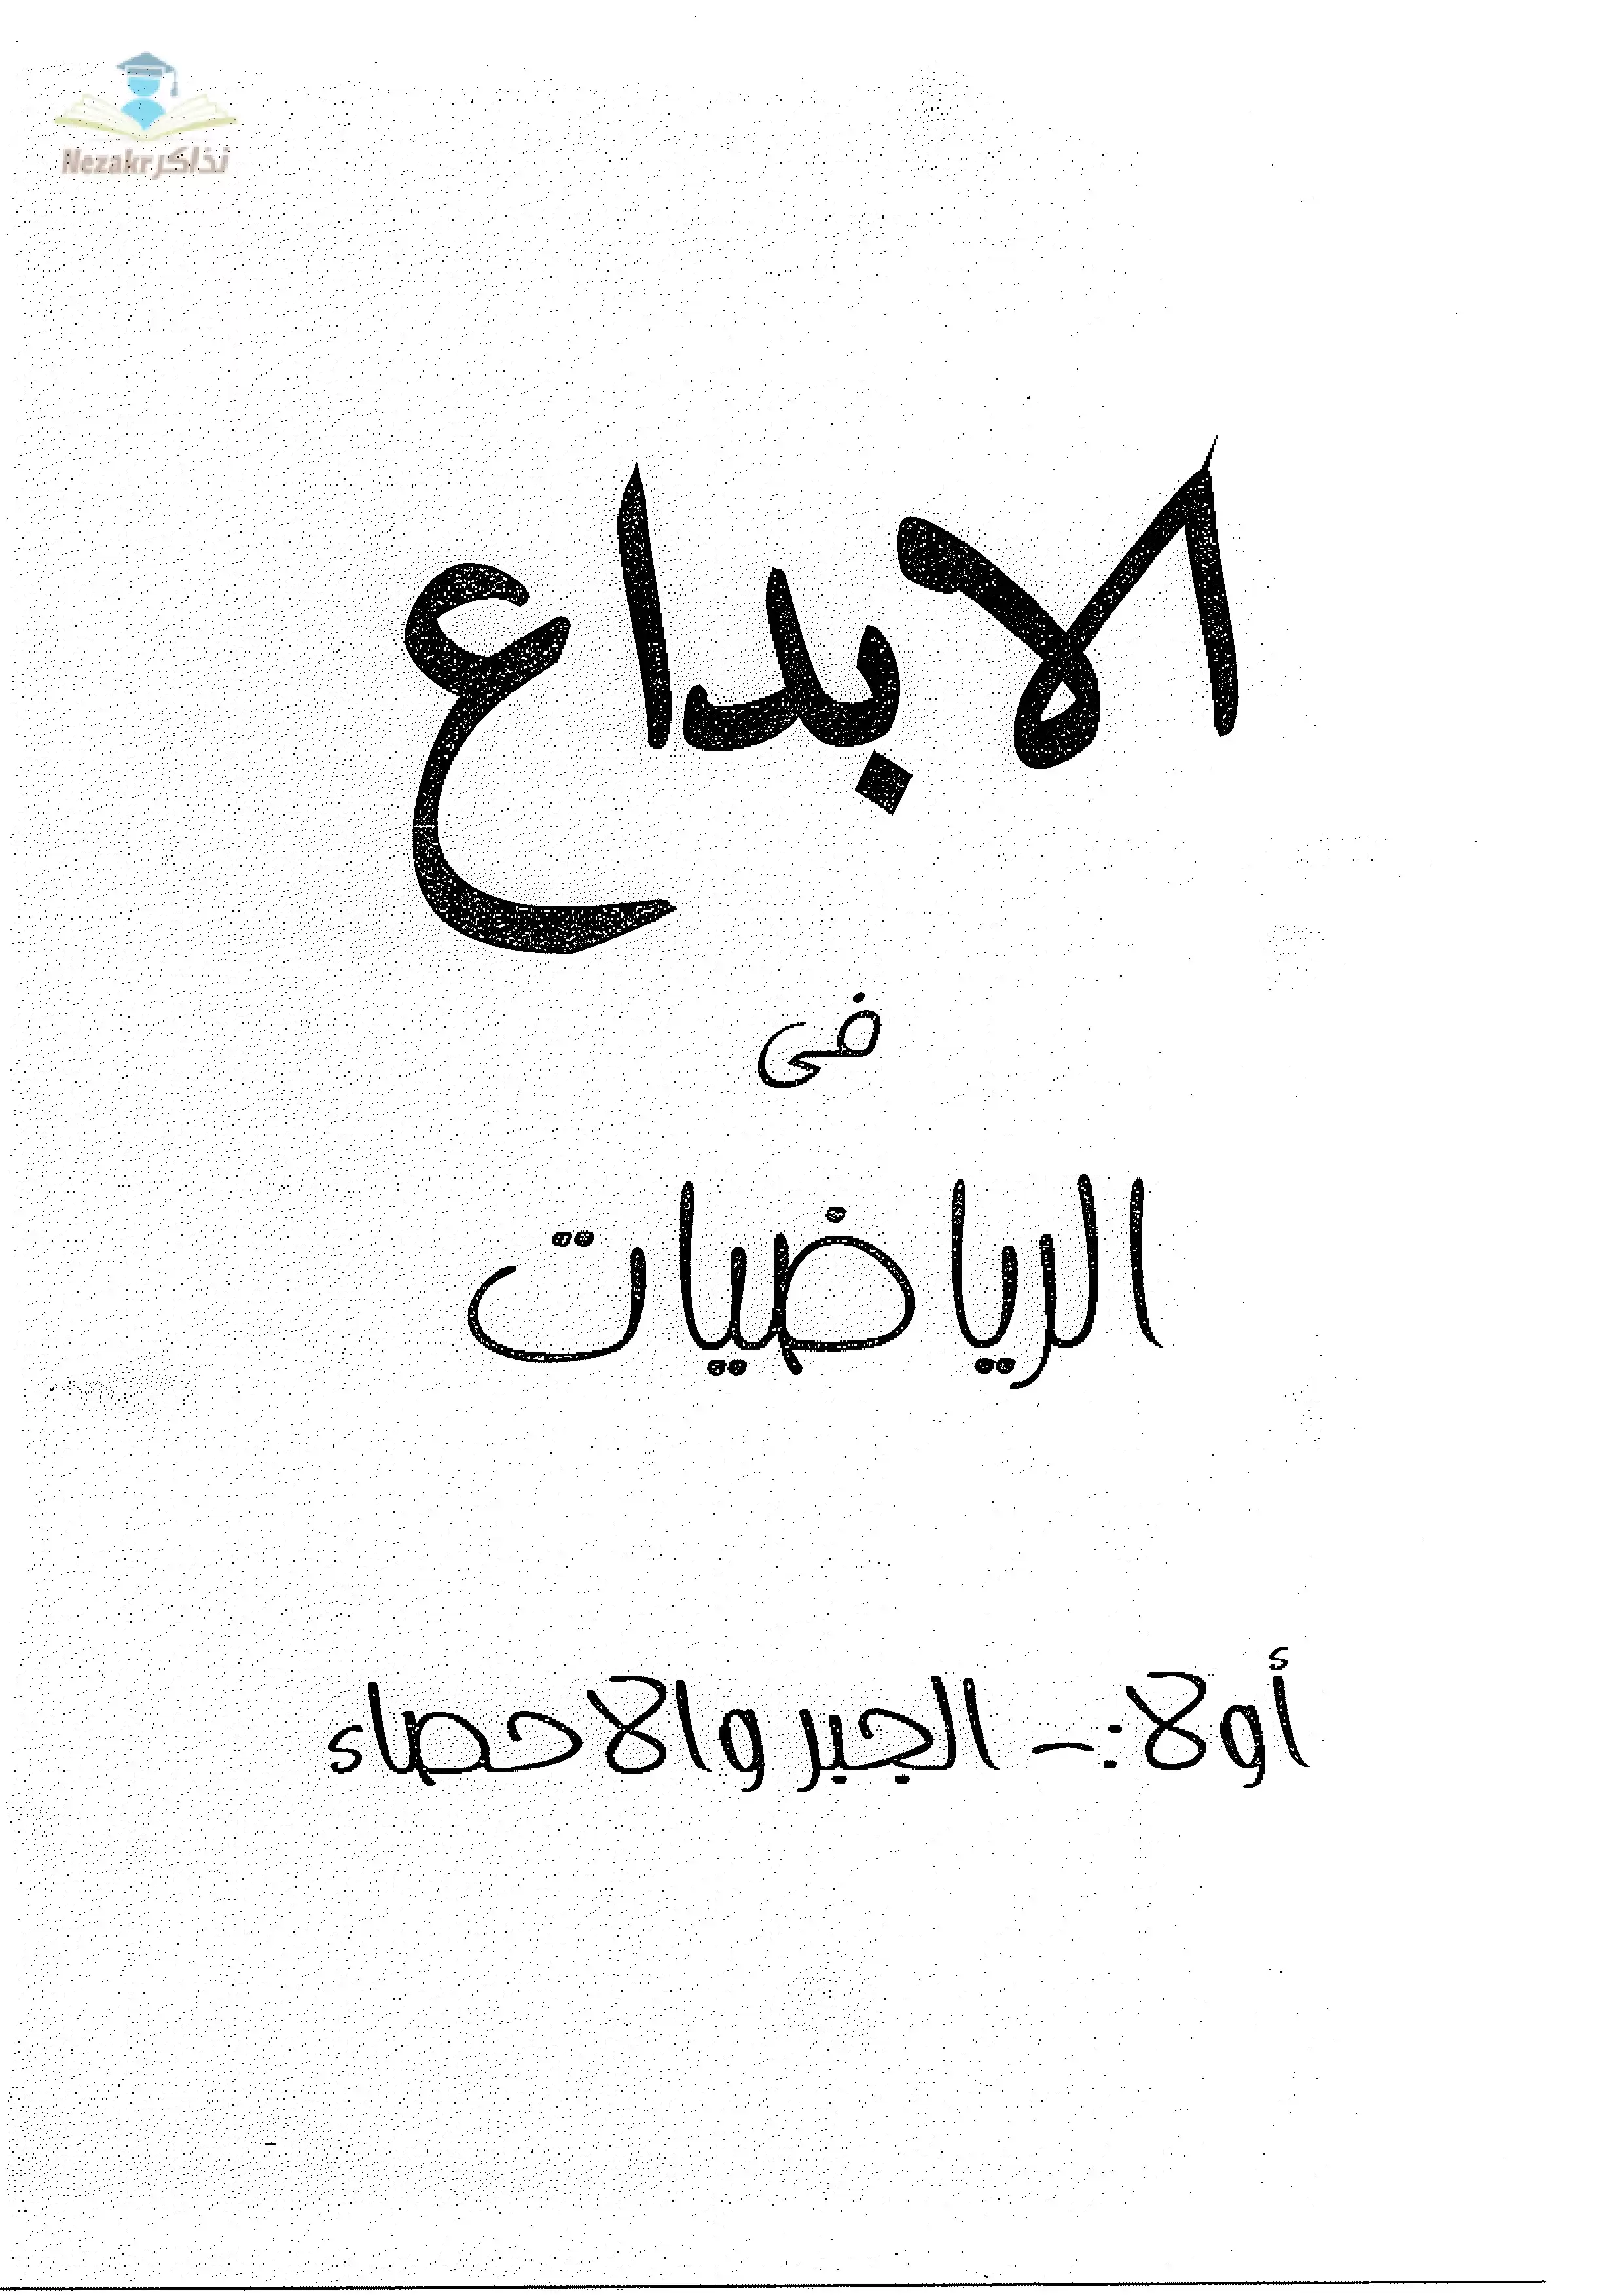 نذاكر Nezakr
الابداع
فى
الرياضيات
أولا:- الجبر والاحصاء